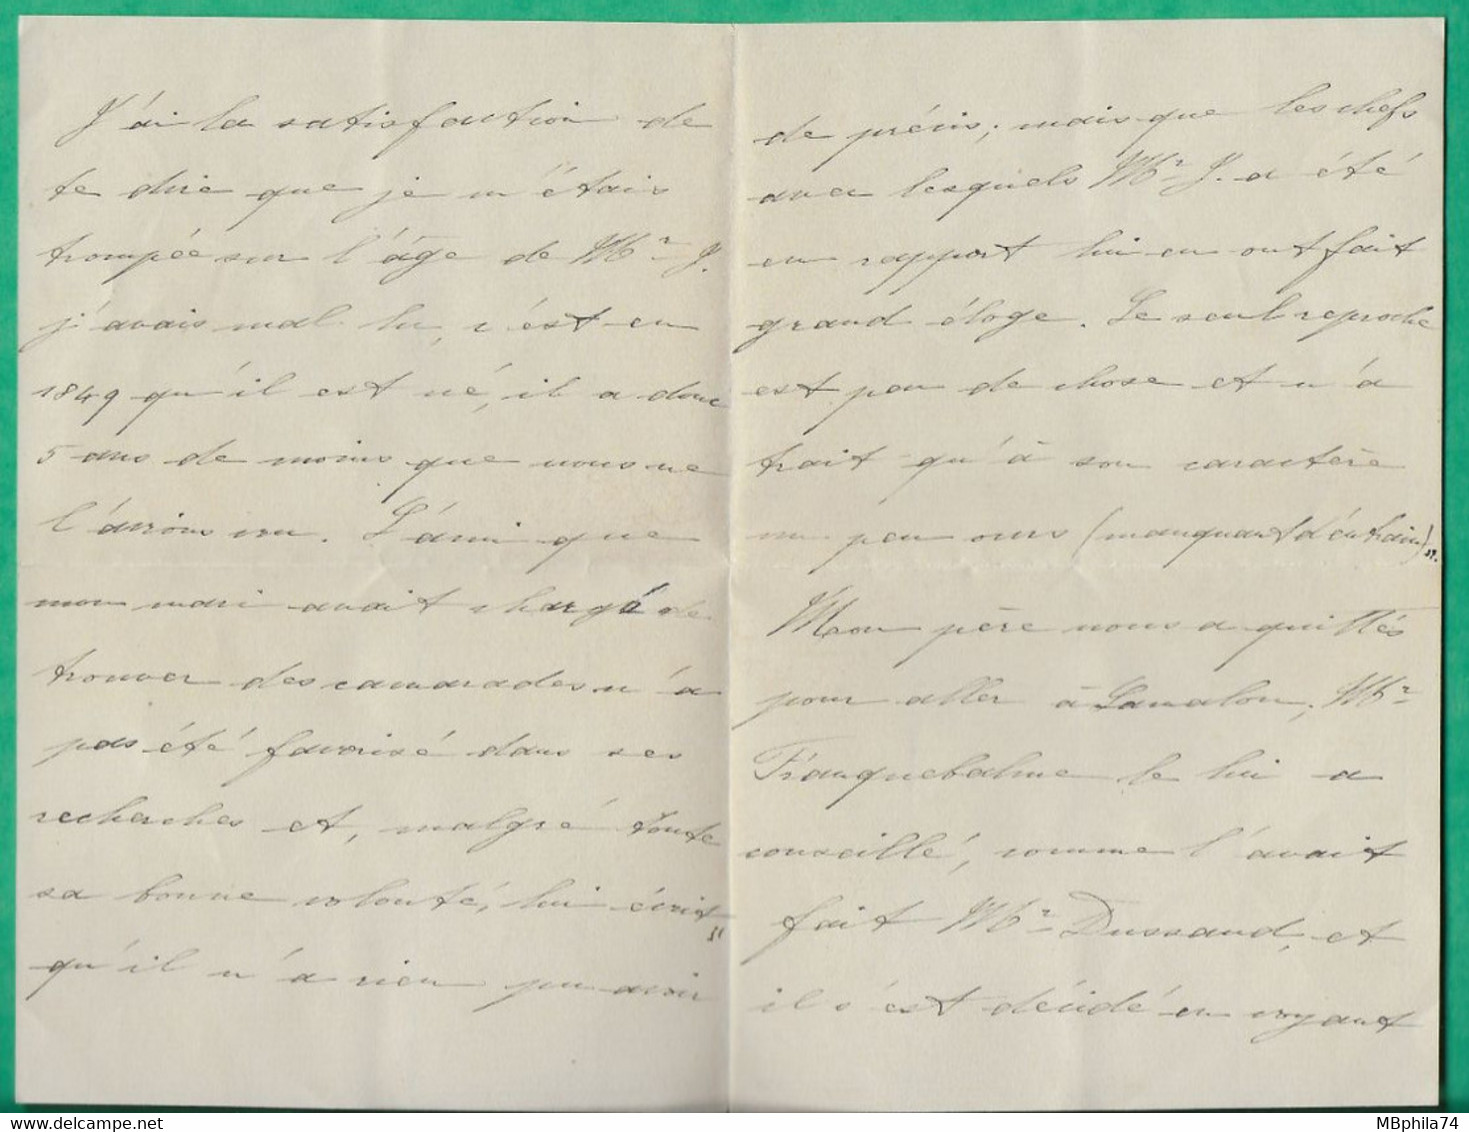 J'ai la satisfaction de
te dire que je m'étais
trompée sur l'âge de Mr J.
j'avais mal lu, c'est en
1849 qu'il est né, il a donc
5 ans de moins que nous ne
l'avions cru. L'ami que
mon mari avait chargé de
trouver des camarades n'a
pas été favorisé dans ses
recherches et, malgré toute
sa bonne volonté, lui écrit
qu'il n'a rien pu avoir
de précis; mais que les chefs
avec lesquels Mr J. a été
en rapport lui en ont fait
grand éloge. Le seul reproche
est peu de chose et n'a
trait qu'à son caractère
un peu ours (manquant d'entrain).
Mon père nous a quittés
pour aller à Lamalou, Mr
Franquebalme le lui a
conseillé, comme l'avait
fait Mr Dussaud, et
il s'est décidé en voyant
MBphila74